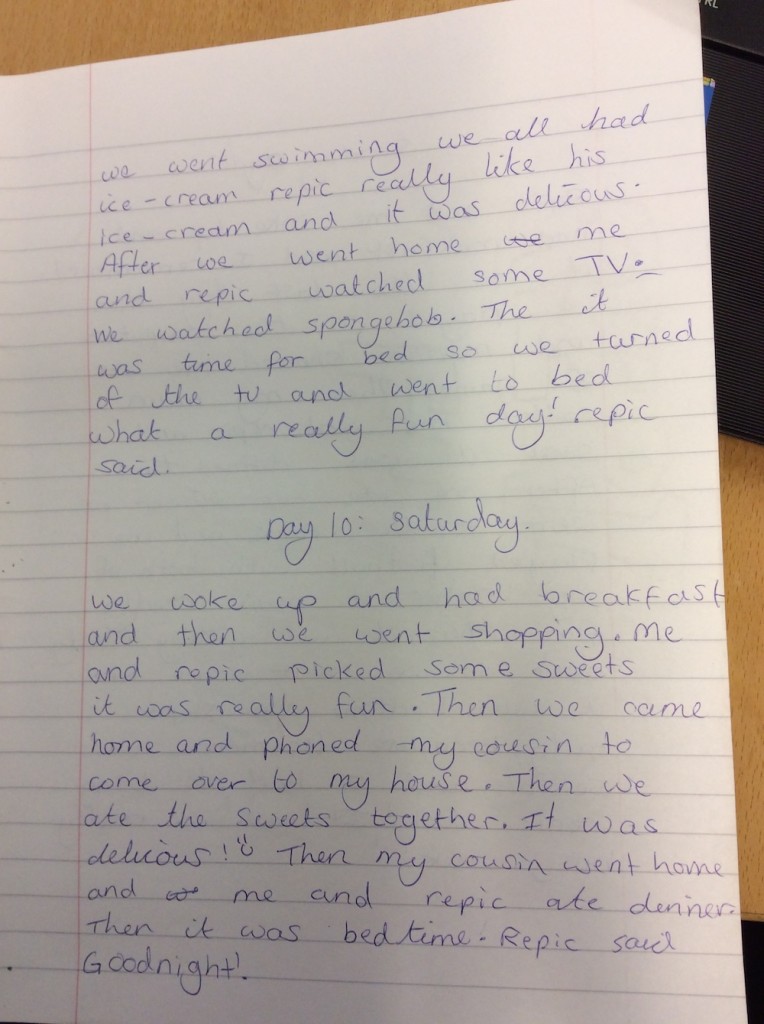 we went swimming we all had
ice-cream repic really like his
Ice-cream and it was delicous.
After we went home we me
and repic watched some TV.
We watched spongebob. The it
was time for bed so we turned
of the tv and went to bed
What a really fun day! repic
said.
Day 10: Saturday.
we woke up and had breakfast
and then we went shopping. Me
and repic picked some sweets
it was really fun. Then we came
home and phoned my cousin to
come over to my house. Then we
ate the sweets together. It was
delicious! Then my cousin went home
and me and repic ate denner.
Then it was bed time. Repic said
Goodnight!